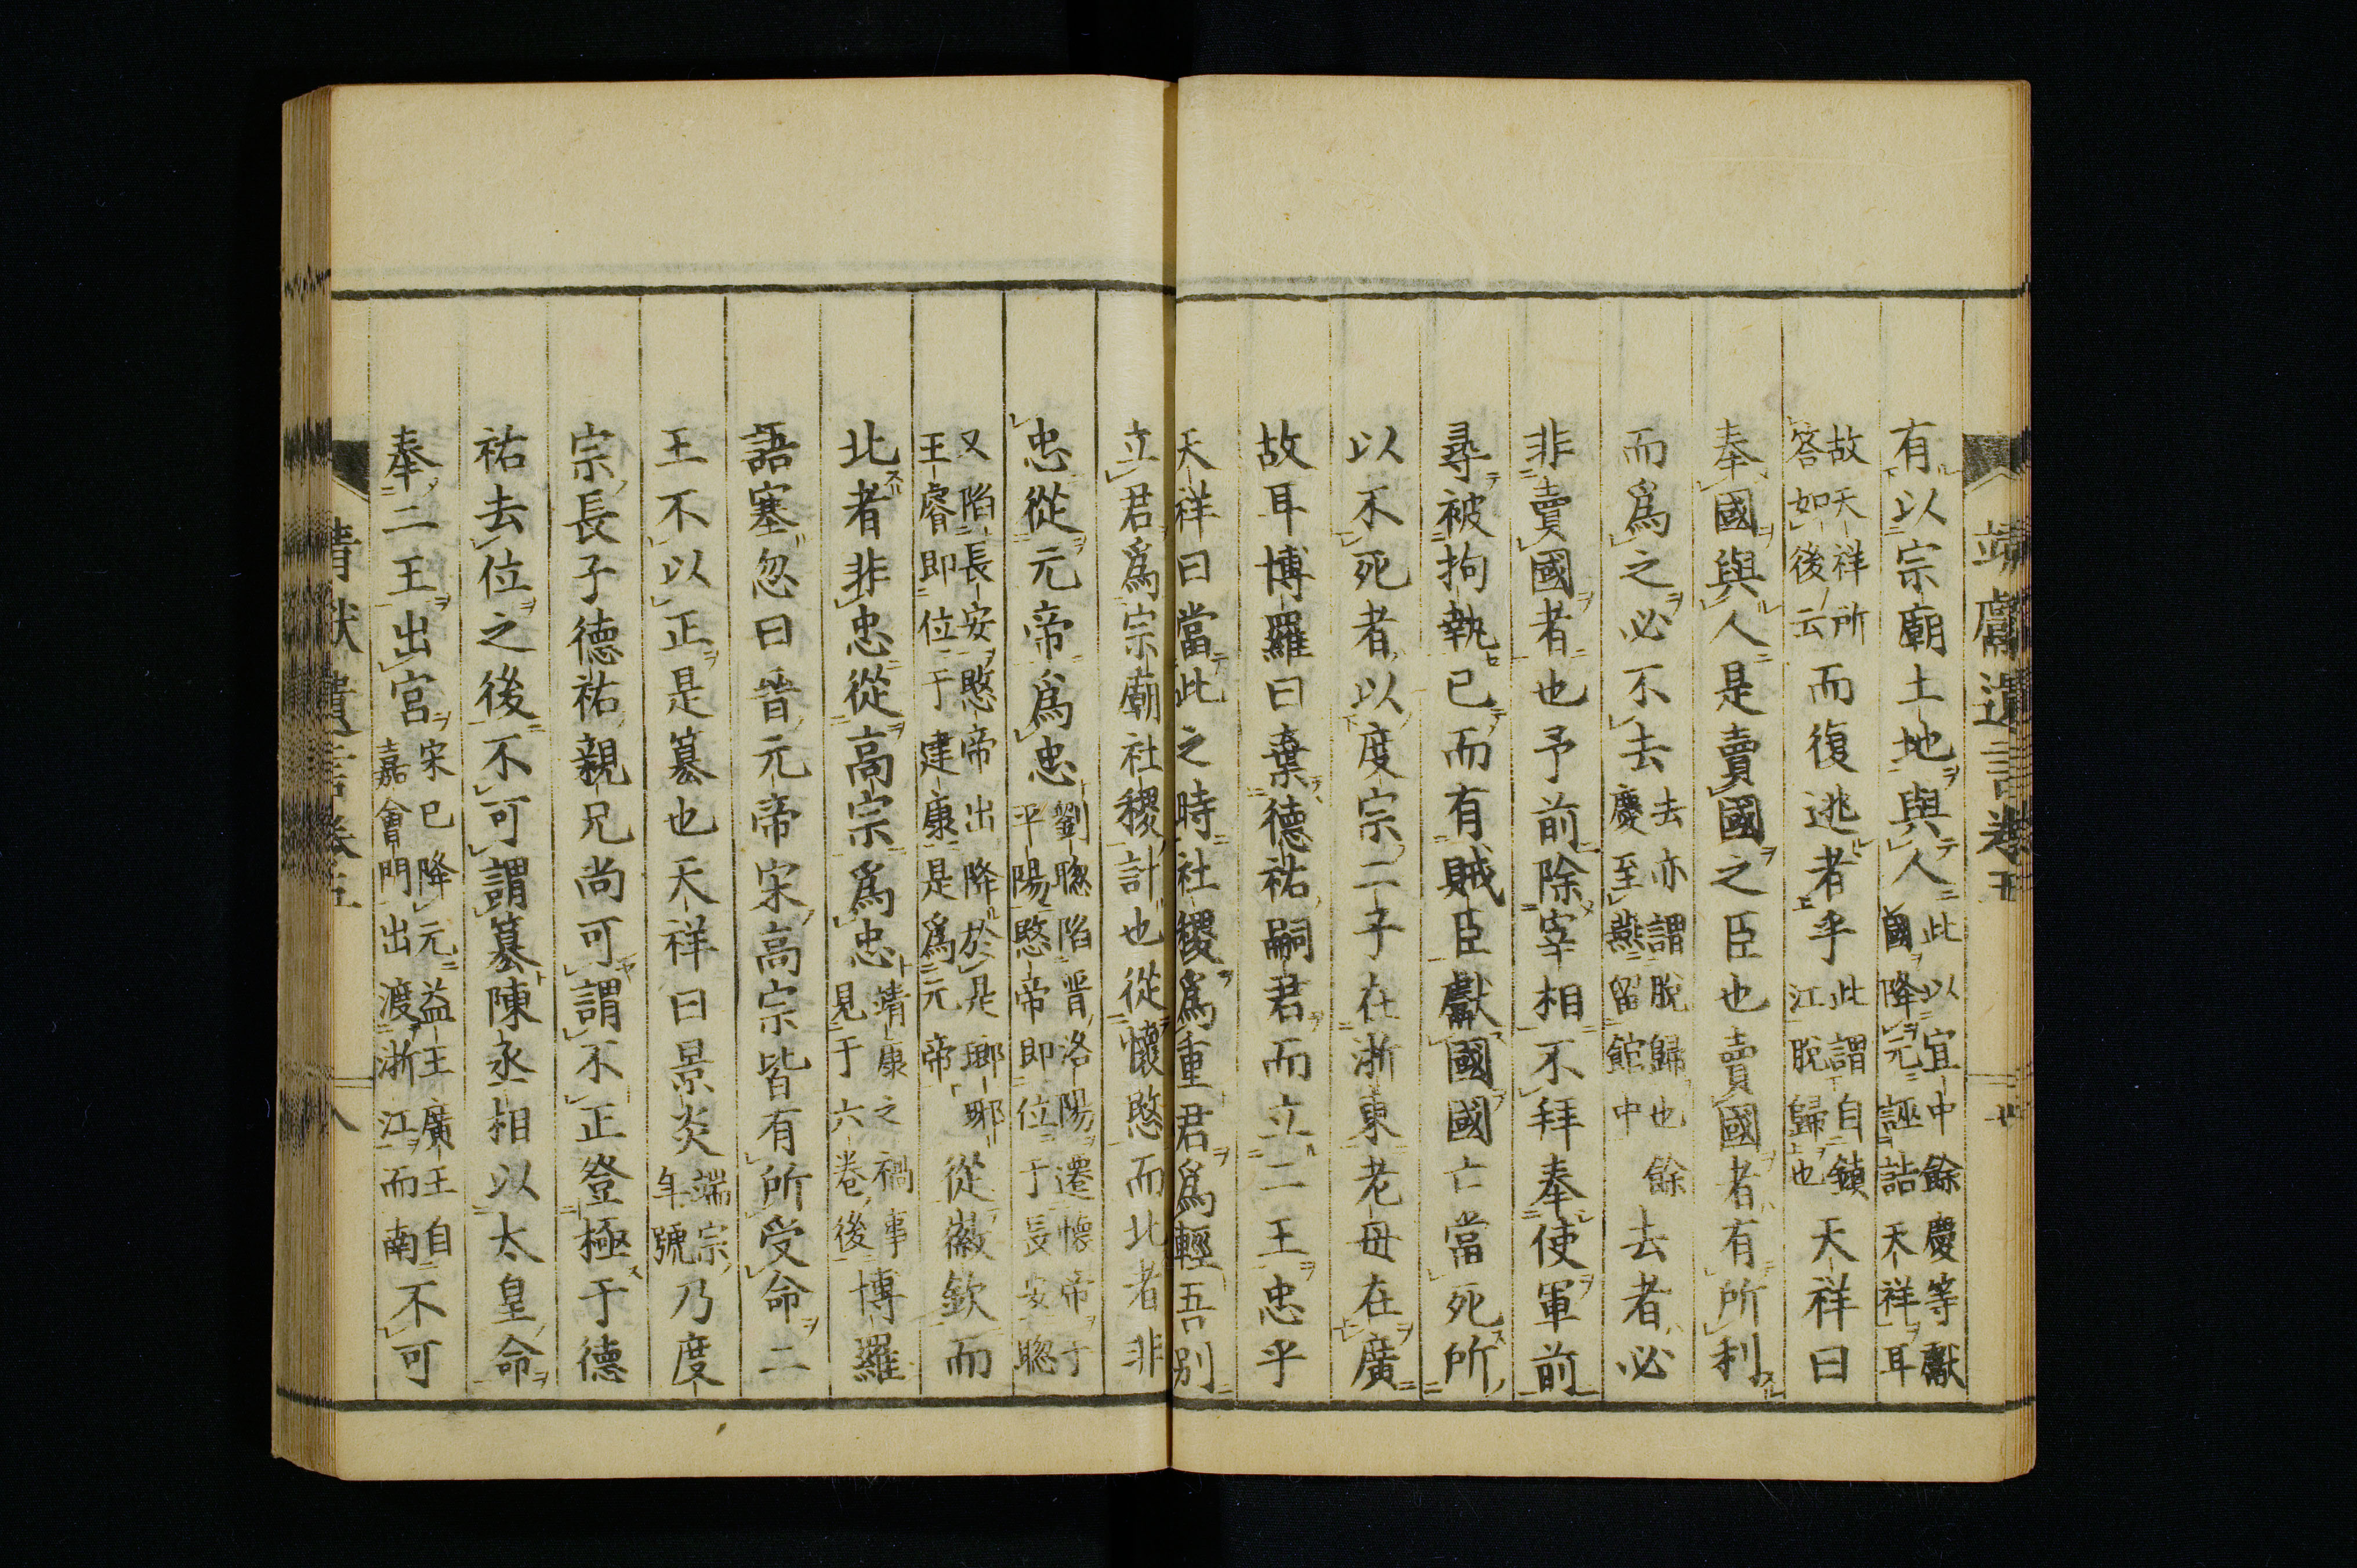 靖獻遺言卷五
有以宗廟土地與人此以宜中餘慶等獻國降元誣詰天祥耳
故天祥所答如後云而復逃者乎此謂自鎮江脫歸也天祥曰
奉國與人是賣國之臣也賣國者有所利
而爲之必不去去亦謂脫歸也餘慶至燕留館中去者必
非賣國者也予前除宰相不拜奉使軍前
尋被拘執已而有賊臣獻國國亡當死所
以不死者以度宗二子在浙東老母在廣
故耳博羅曰棄德祐嗣君而立二王忠乎
天祥曰當此之時社稷爲重君爲輕吾別
立君爲宗廟社稷計也從懷愍而北者非
忠從元帝爲忠劉聰陷晋洛陽遷懷帝于平陽愍帝即位于長安聰
又陷長安愍帝出降於是瑯琊王睿即位于建康是爲元帝從徽欽而
北者非忠從高宗爲忠靖康之禍事見于六卷後博羅
語塞忽曰晋元帝宋高宗皆有所受命二
王不以正是篡也天祥曰景炎端宗年號乃度
宗長子德祐親兄尚可謂不正登極于德
祐去位之後不可謂篡陳丞相以太皇命
奉二王出宮宋已降元益王廣王自嘉會門出渡浙江而南不可
靖獻遺言卷五